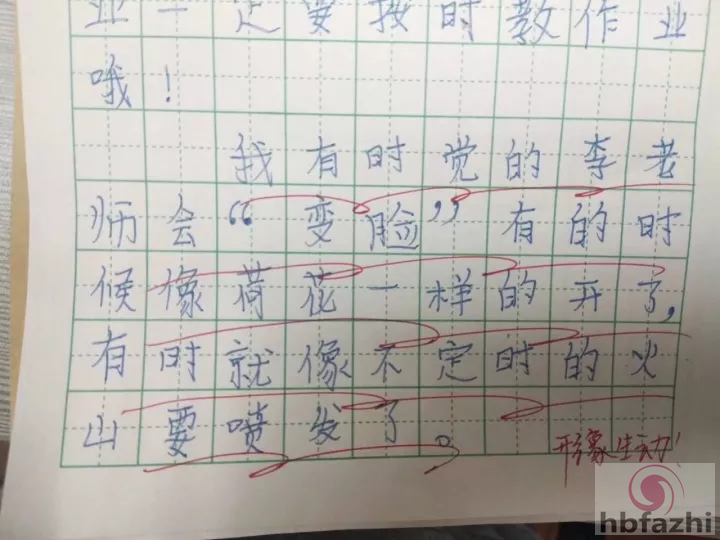 业一定要按时教作业
哦！
我有时觉的李老
师会“变脸”有的时
候像荷花一样的开了，
有时就像不定时的火
山要喷发了。
形象生动！
hbfazhi